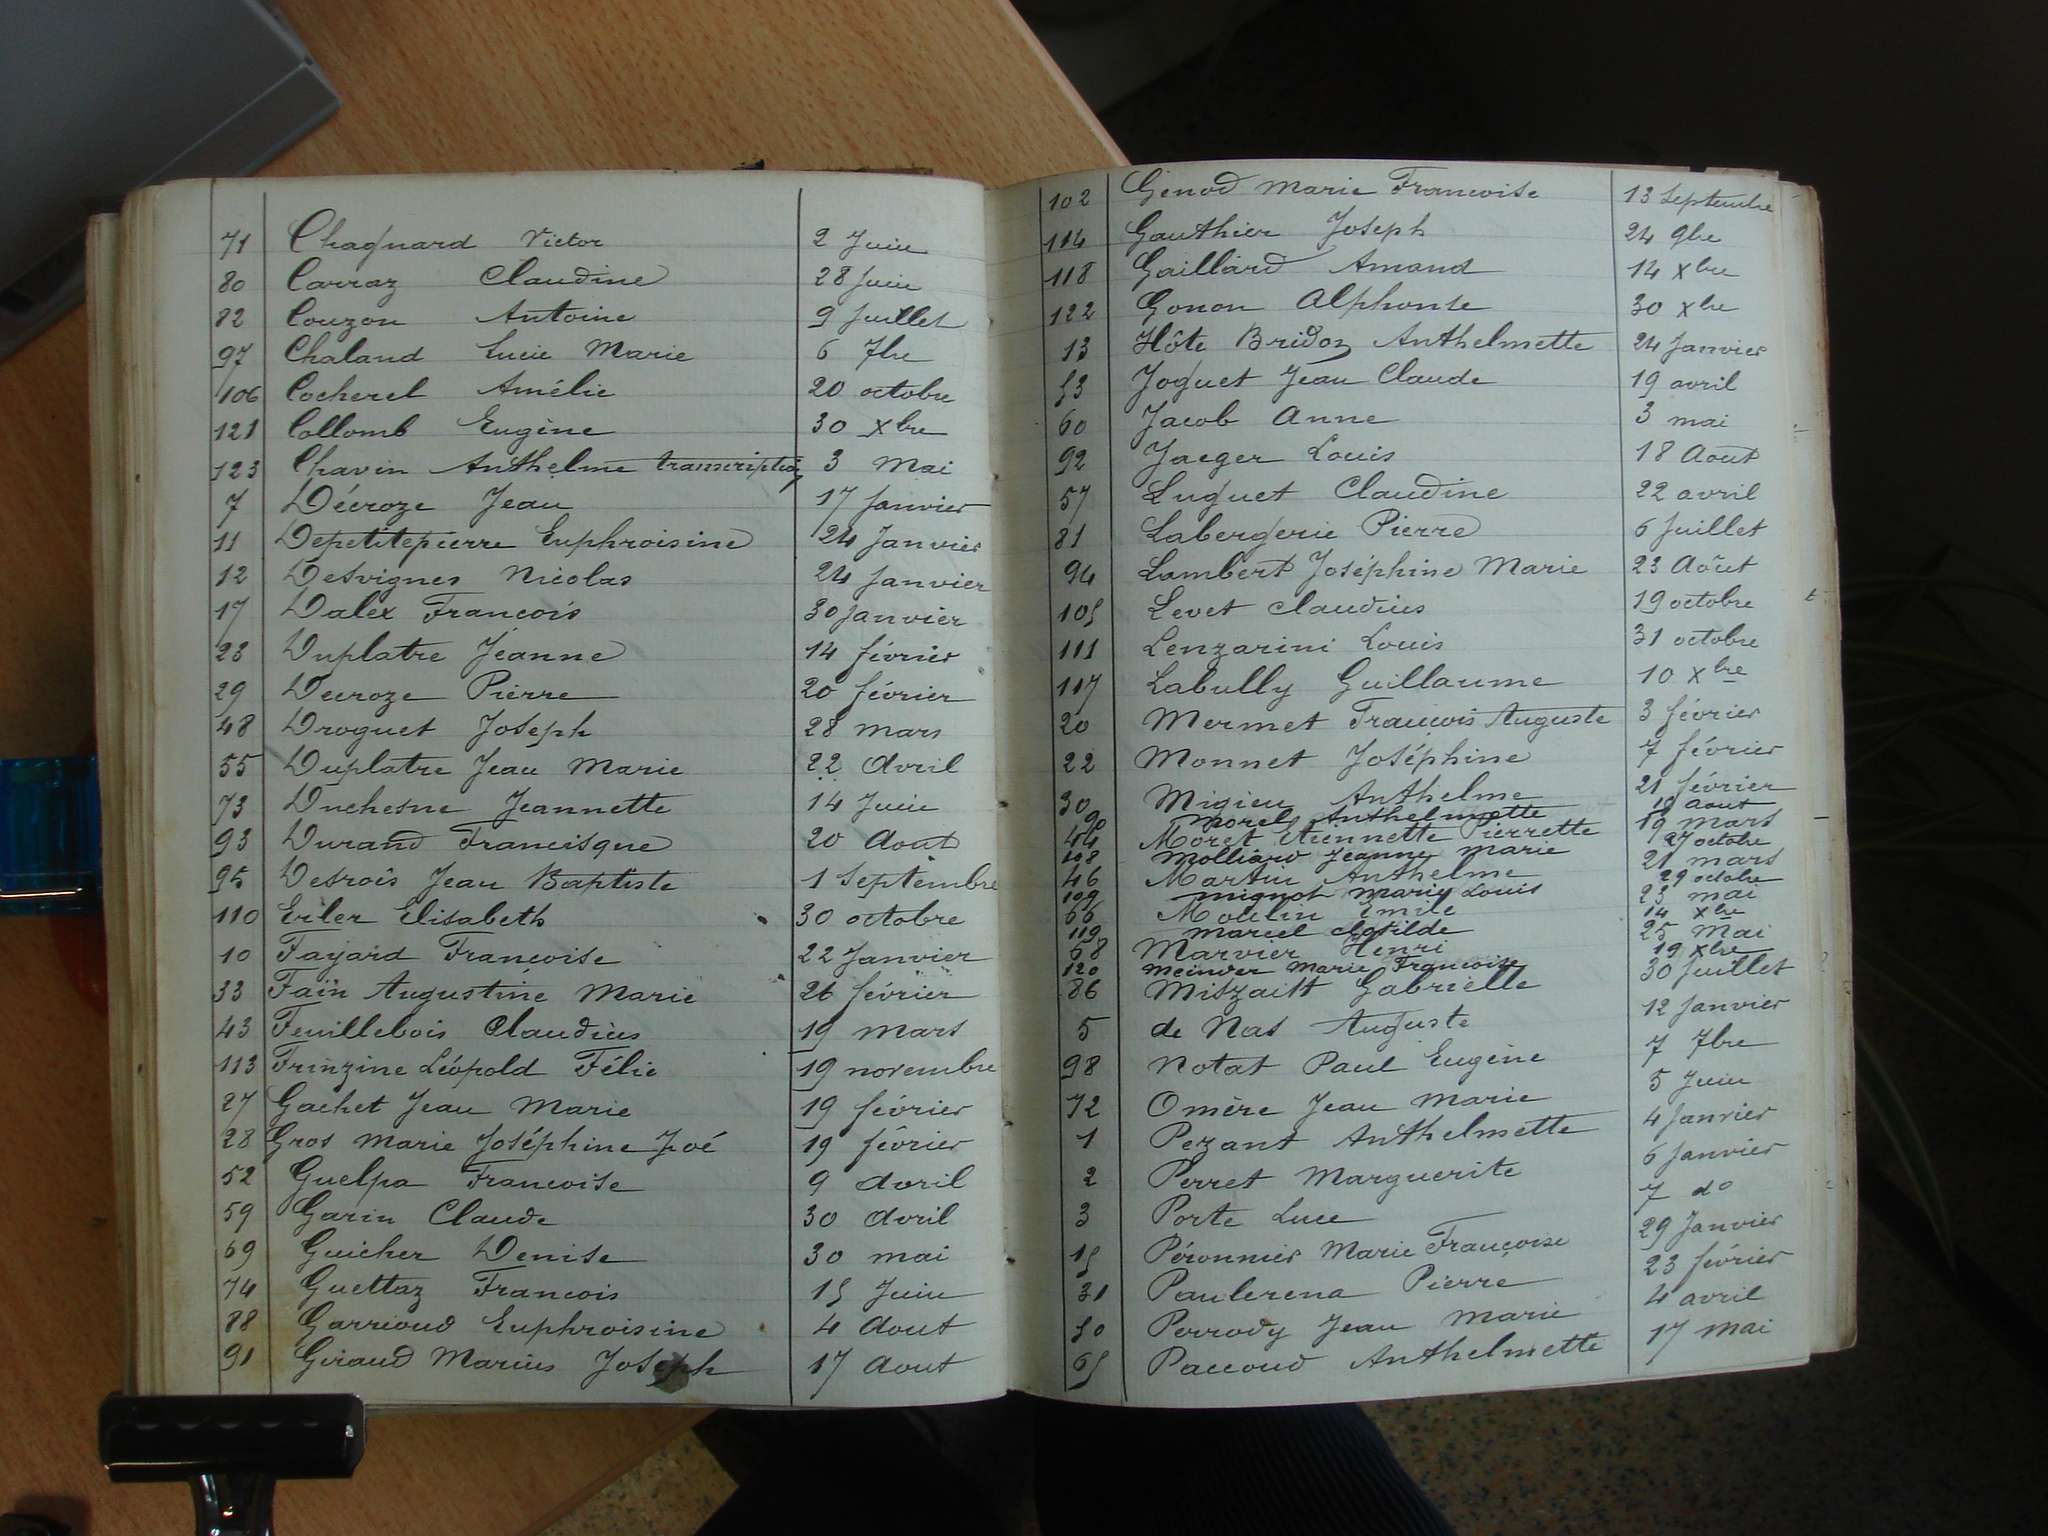 71 Chagnard Victor 2 Juin
80 Carraz Claudine 28 Juin
82 Couzon Antoine 9 Juillet
97 Chaland Lucie Marie 6 7bre
106 Cocherel Amélie 20 octobre
121 Collomb Eugène 30 Xbre
123 Chavin Anthelme transcription 3 Mai
7 Décroze Jean 17 Janvier
11 Depetitepierre Euphroisine 24 Janvier
12 Desvignes Nicolas 24 Janvier
17 Dalex Francois 30 Janvier
23 Duplatre Jeanne 14 février
29 Decroze Pierre 20 février
48 Droguet Joseph 28 mars
55 Duplatre Jean Marie 22 Avril
73 Duchesne Jeannette 14 Juin
93 Durand Francisque 20 Aout
95 Desrois Jean Baptiste 1 Septembre
110 Erler Elisabeth 30 octobre
10 Fayard Francoise 22 Janvier
33 Faïn Augustine Marie 26 février
43 Feuillebois Claudius 19 mars
113 Frinzine Léopold Félic 19 novembre
27 Gachet Jean Marie 19 février
28 Gros Marie Joséphine Zoé 19 février
52 Guelpa Francoise 9 Avril
59 Garin Claude 30 Avril
69 Guicher Denise 30 mai
74 Guettaz Francois 15 Juin
88 Garrioud Euphroisine 4 Aout
91 Giraud Marius Joseph 17 Aout
102 Génod Marie Francoise 13 Septembre
114 Gauthier Joseph 24 9bre
118 Gaillard Amand 14 Xbre
122 Gonon Alphonse 30 Xbre
13 Hôte Bridoz Anthelmette 24 Janvier
53 Joguet Jean Claude 19 avril
60 Jacob Anne 3 mai
92 Jaeger Louis 18 Aout
57 Luguet Claudine 22 avril
81 Labergerie Pierre 6 Juillet
94 Lambert Joséphine Marie 23 Août
105 Levet Claudius 19 octobre
111 Lenzarini Louis 31 octobre
117 Labully Guillaume 10 Xbre
20 Mermet Francois Auguste 3 février
22 Monnet Joséphine 7 février
30 Migieu Anthelme 21 février
90 Morel Anthelmette 10 Aout
44 Moret Etiennette Pierrette 19 mars
108 Molliard Jeanne Marie 27 octobre
46 Martin Anthelme 21 mars
109 Mignot Marie Louis 29 octobre
66 Moulin Emile 23 mai
119 Marcel Clotilde 14 Xbre
68 Marvier Henri 25 Mai
120 Marie Francoise 19 Xbre
86 Gabrielle 30 Juillet
5 de Nas Auguste 12 Janvier
98 Notat Paul Eugène 7 7bre
72 Omère Jean Marie 5 Juin
1 Pezant Anthelmette 4 Janvier
2 Perret Marguerite 6 Janvier
3 Porte Luce 7 do
15 Péronnier Marie Françoise 29 Janvier
31 Paulerena Pierre 23 février
50 Perrody Jean Marie 4 avril
65 Paccoud Anthelmette 17 mai